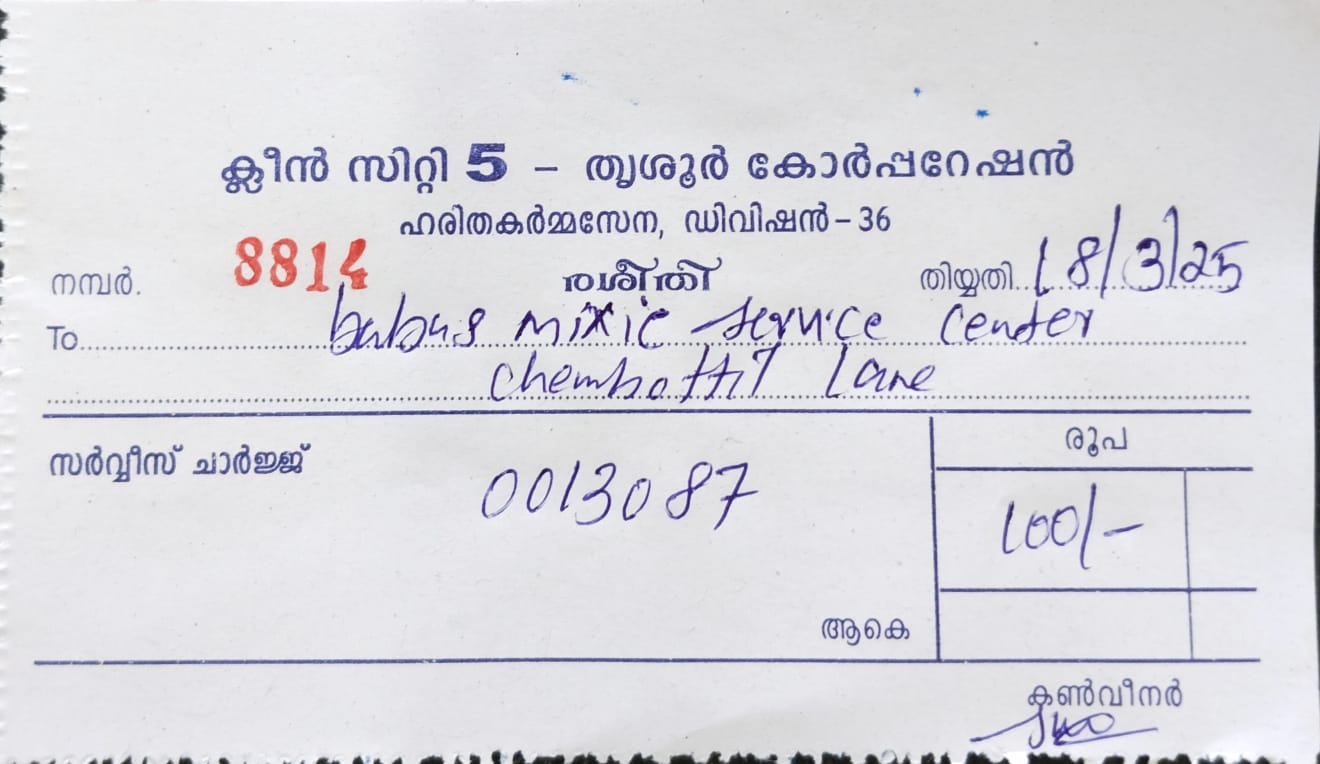 ക്ലീൻ സിറ്റി 5 – തൃശൂർ കോർപ്പറേഷൻ
ഹരിതകർമ്മസേന, ഡിവിഷൻ – 36
നമ്പർ. 8814 രശീതി തിയ്യതി 18/3/25
To babus mixie service center
chembottil Lane
സർവ്വീസ് ചാർജ്ജ് 0013087
രൂപ
100/-
ആകെ
കൺവീനർ